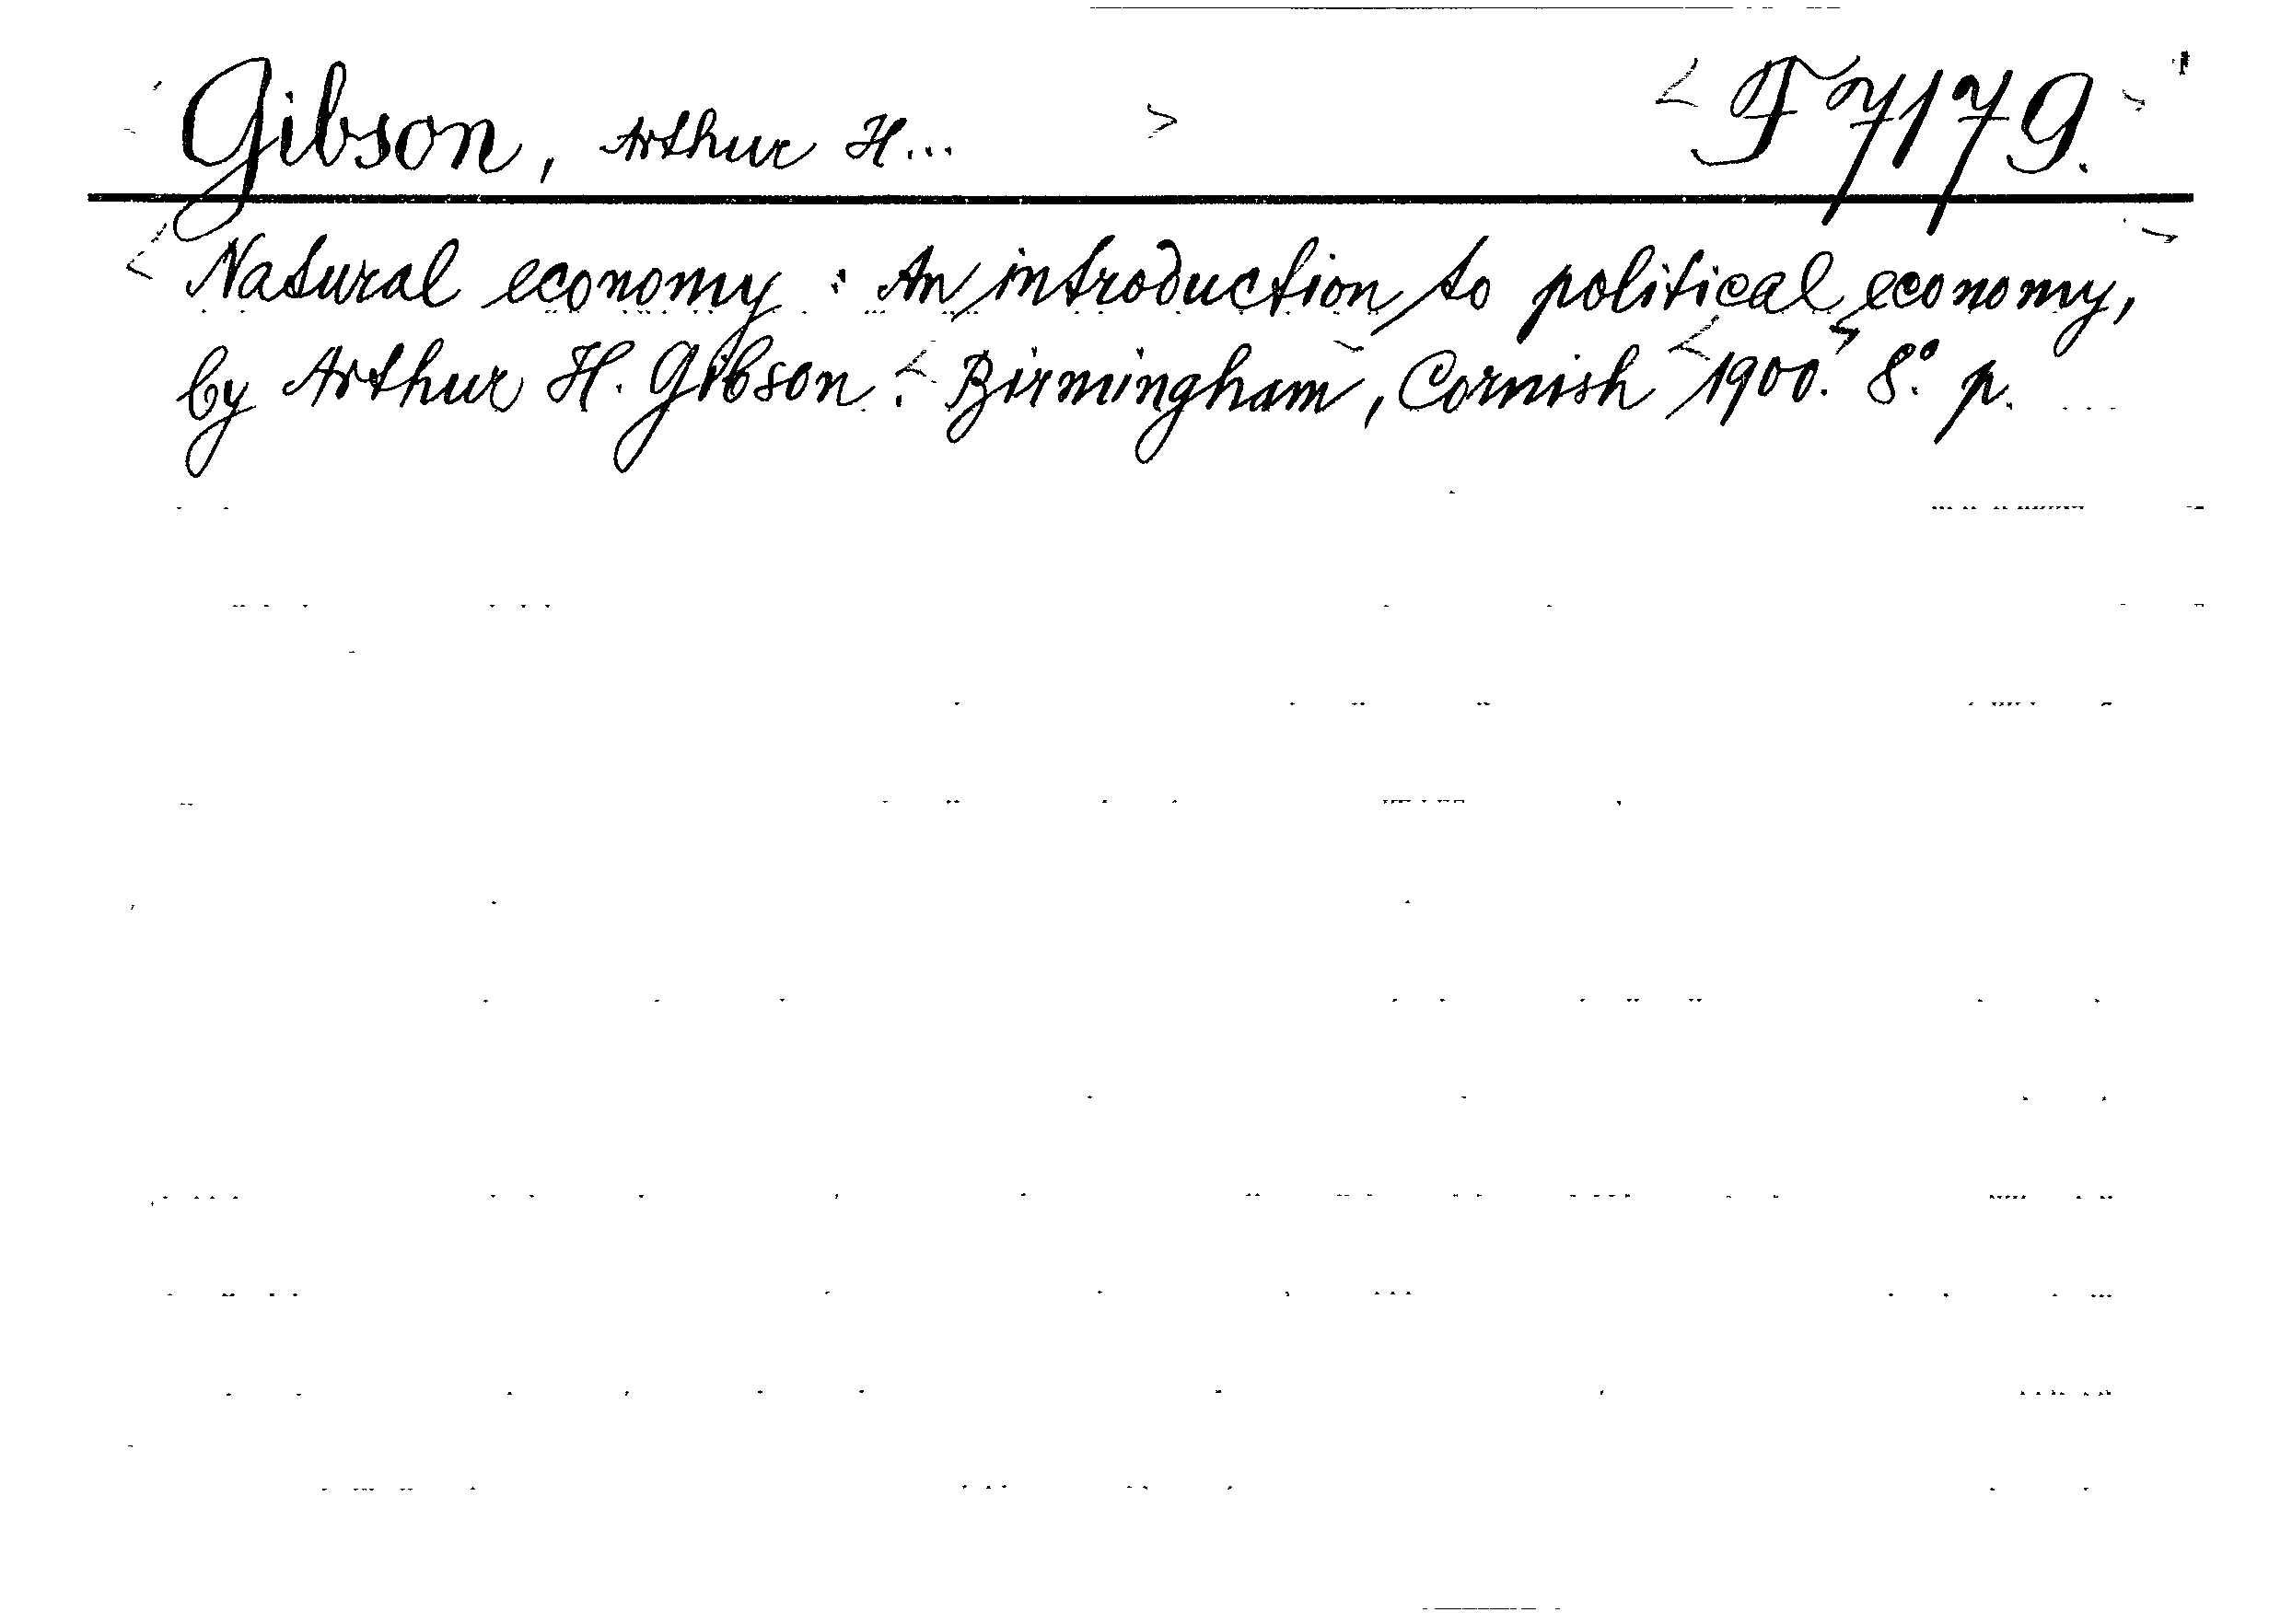 Gibson, Arthur H... F 7179.
Natural economy : An introduction to political economy,
by Arthur H. Gibson. Birmingham, Cornish 1900. 8°. p.